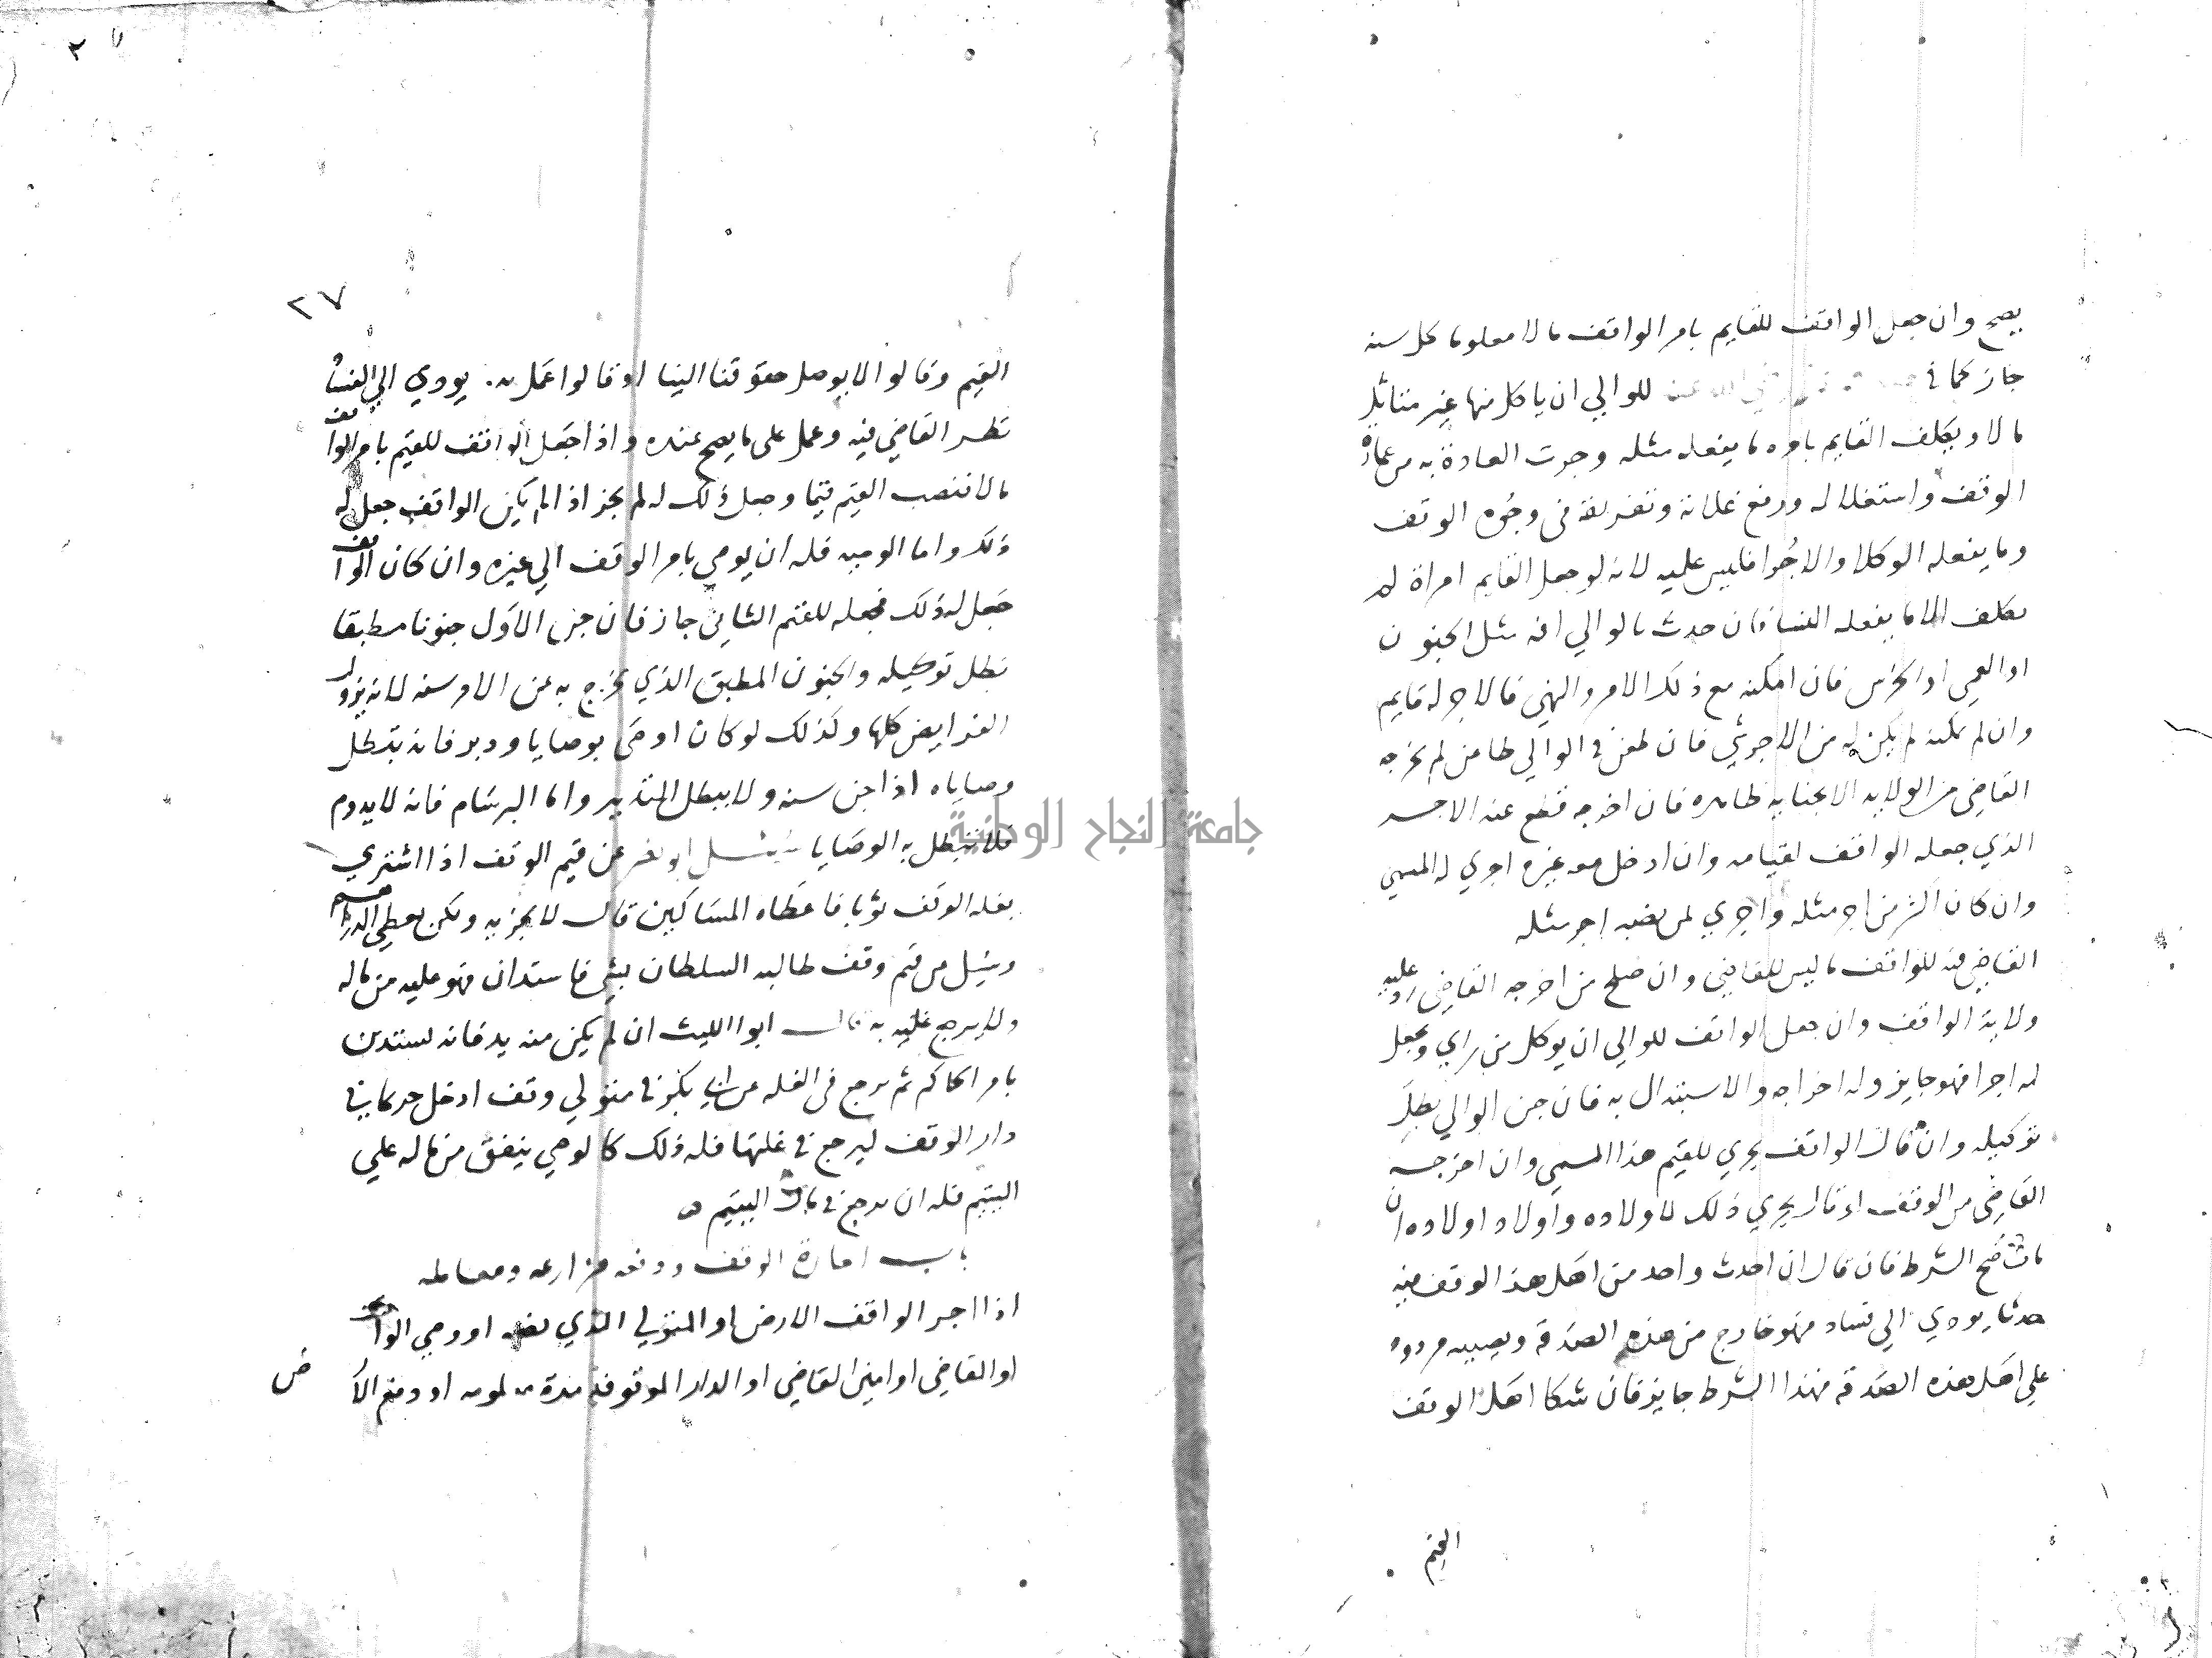 يصح وان جعل الواقف للقايم بامر الواقف مالا معلوما كل سنه
جاز كما في للوالي ان ياكل منها غير متاثل
مالا ويكلف القايم بامره ما يفعله مثله وجرت العادة به من عمارة
الوقف واستغلاله ورفع غلاته وتفريقه في وجوه الوقف
وما يفعله الوكلا والاجرا فليس عليه لانه لو جعل القايم امراة لم
تكلف الا ما يفعله النسا فان حدث بالوالي افه مثل الجنون
او العمي او الخرس فان امكنه مع ذلك الامر والنهي فالاجر له قايم
وان لم يمكنه لم يكن له من الاجر شي فان طعن في الوالي طاعن لم يخرجه
القاضي من الولايه الا بخيانه ظاهره فان اخرجه قطع عنه الاجر
الذي جعله الواقف لقيامه وان ادخل معه غيره اجري له المسمي
وان كان اكثر من اجر مثله واجري لمن نصبه اجر مثله
القاضي فيه للواقف ما ليس للقاضي وان صلح من اخرجه القاضي رد عليه
ولاية الواقف وان جعل الواقف للوالي ان يوكل من راي ويجعل
له اجرا فهو جايز وله اخراجه والاستبدال به فان جن الوالي بطل
توكيله وان قال الواقف يجري للقيم هذا المسمي وان اخرجه
القاضي من الوقف او قال يجري ذلك لاولاده واولاد اولاده ان
مات صح الشرط فان قال ان احدث واحد من اهل هذا الوقف فيه
حدثا يودي الي فساد فهو خارج من هذه الصدقة ونصيبه مردود
علي اهل هذه الصدقة فهذا الشرط جايز فان شكا اهل الوقف
القيم
٢٧
القيم وقالوا لا يوصل حقوقنا الينا او قالوا عمل يودي الي الفساد
نظر القاضي فيه وعمل على ما يصح عنده واذا جعل الواقف للقيم بامر الواقف
مالا فنصب القيم قيما وجعل ذلك له لم يجز اذا لم يكن الواقف جعل له
ذلك واما الوصيه فله ان يوصي بامر الوقف الي غيره وان كان الواقف
جعل له ذلك فجعله للقيم الثاني جاز فان جن الاول جنونا مطبقا
بطل توكيله والجنون المطبق الذي يخرج به عن الامر سنه لانه يزول
الفرايض كلها وكذلك لو كان اوصي بوصايا ودبر فانه تبطل
وصاياه اذا جن سنه ولا يبطل التدبير واما البرسام فانه لا يدوم
فلا تبطل به الوصايا سئل ابو نصر عن قيم الوقف اذا اشتري
بغله الوقف ثوبا فاعطاه المساكين قال لا يجزيه ولكن يعطي الدراهم
وسئل من قيم وقف طالبه السلطان بشي فاستدان فهو عليه من ماله
ولا يرجع عليه به قال ابوا الليث ان لم يكن منه بد فانه يستدين
بامر الحاكم ثم يرجع في الغله عن ابي بكر في متولي وقف ادخل جزعا في
دار الوقف ليرجع في غلتها فله ذلك كالوصي ينفق من ماله علي
اليتيم فله ان يرجع في مال اليتيم
باب اجارة الوقف ودفعه مزارعه ومعامله
اذا اجر الواقف الارض او المتولي الذي نصبه او وصي الواقف
او القاضي او امين القاضي او الدار الموقوفه مدة معلومه او دفع الارض
جامعة النجاح الوطنية